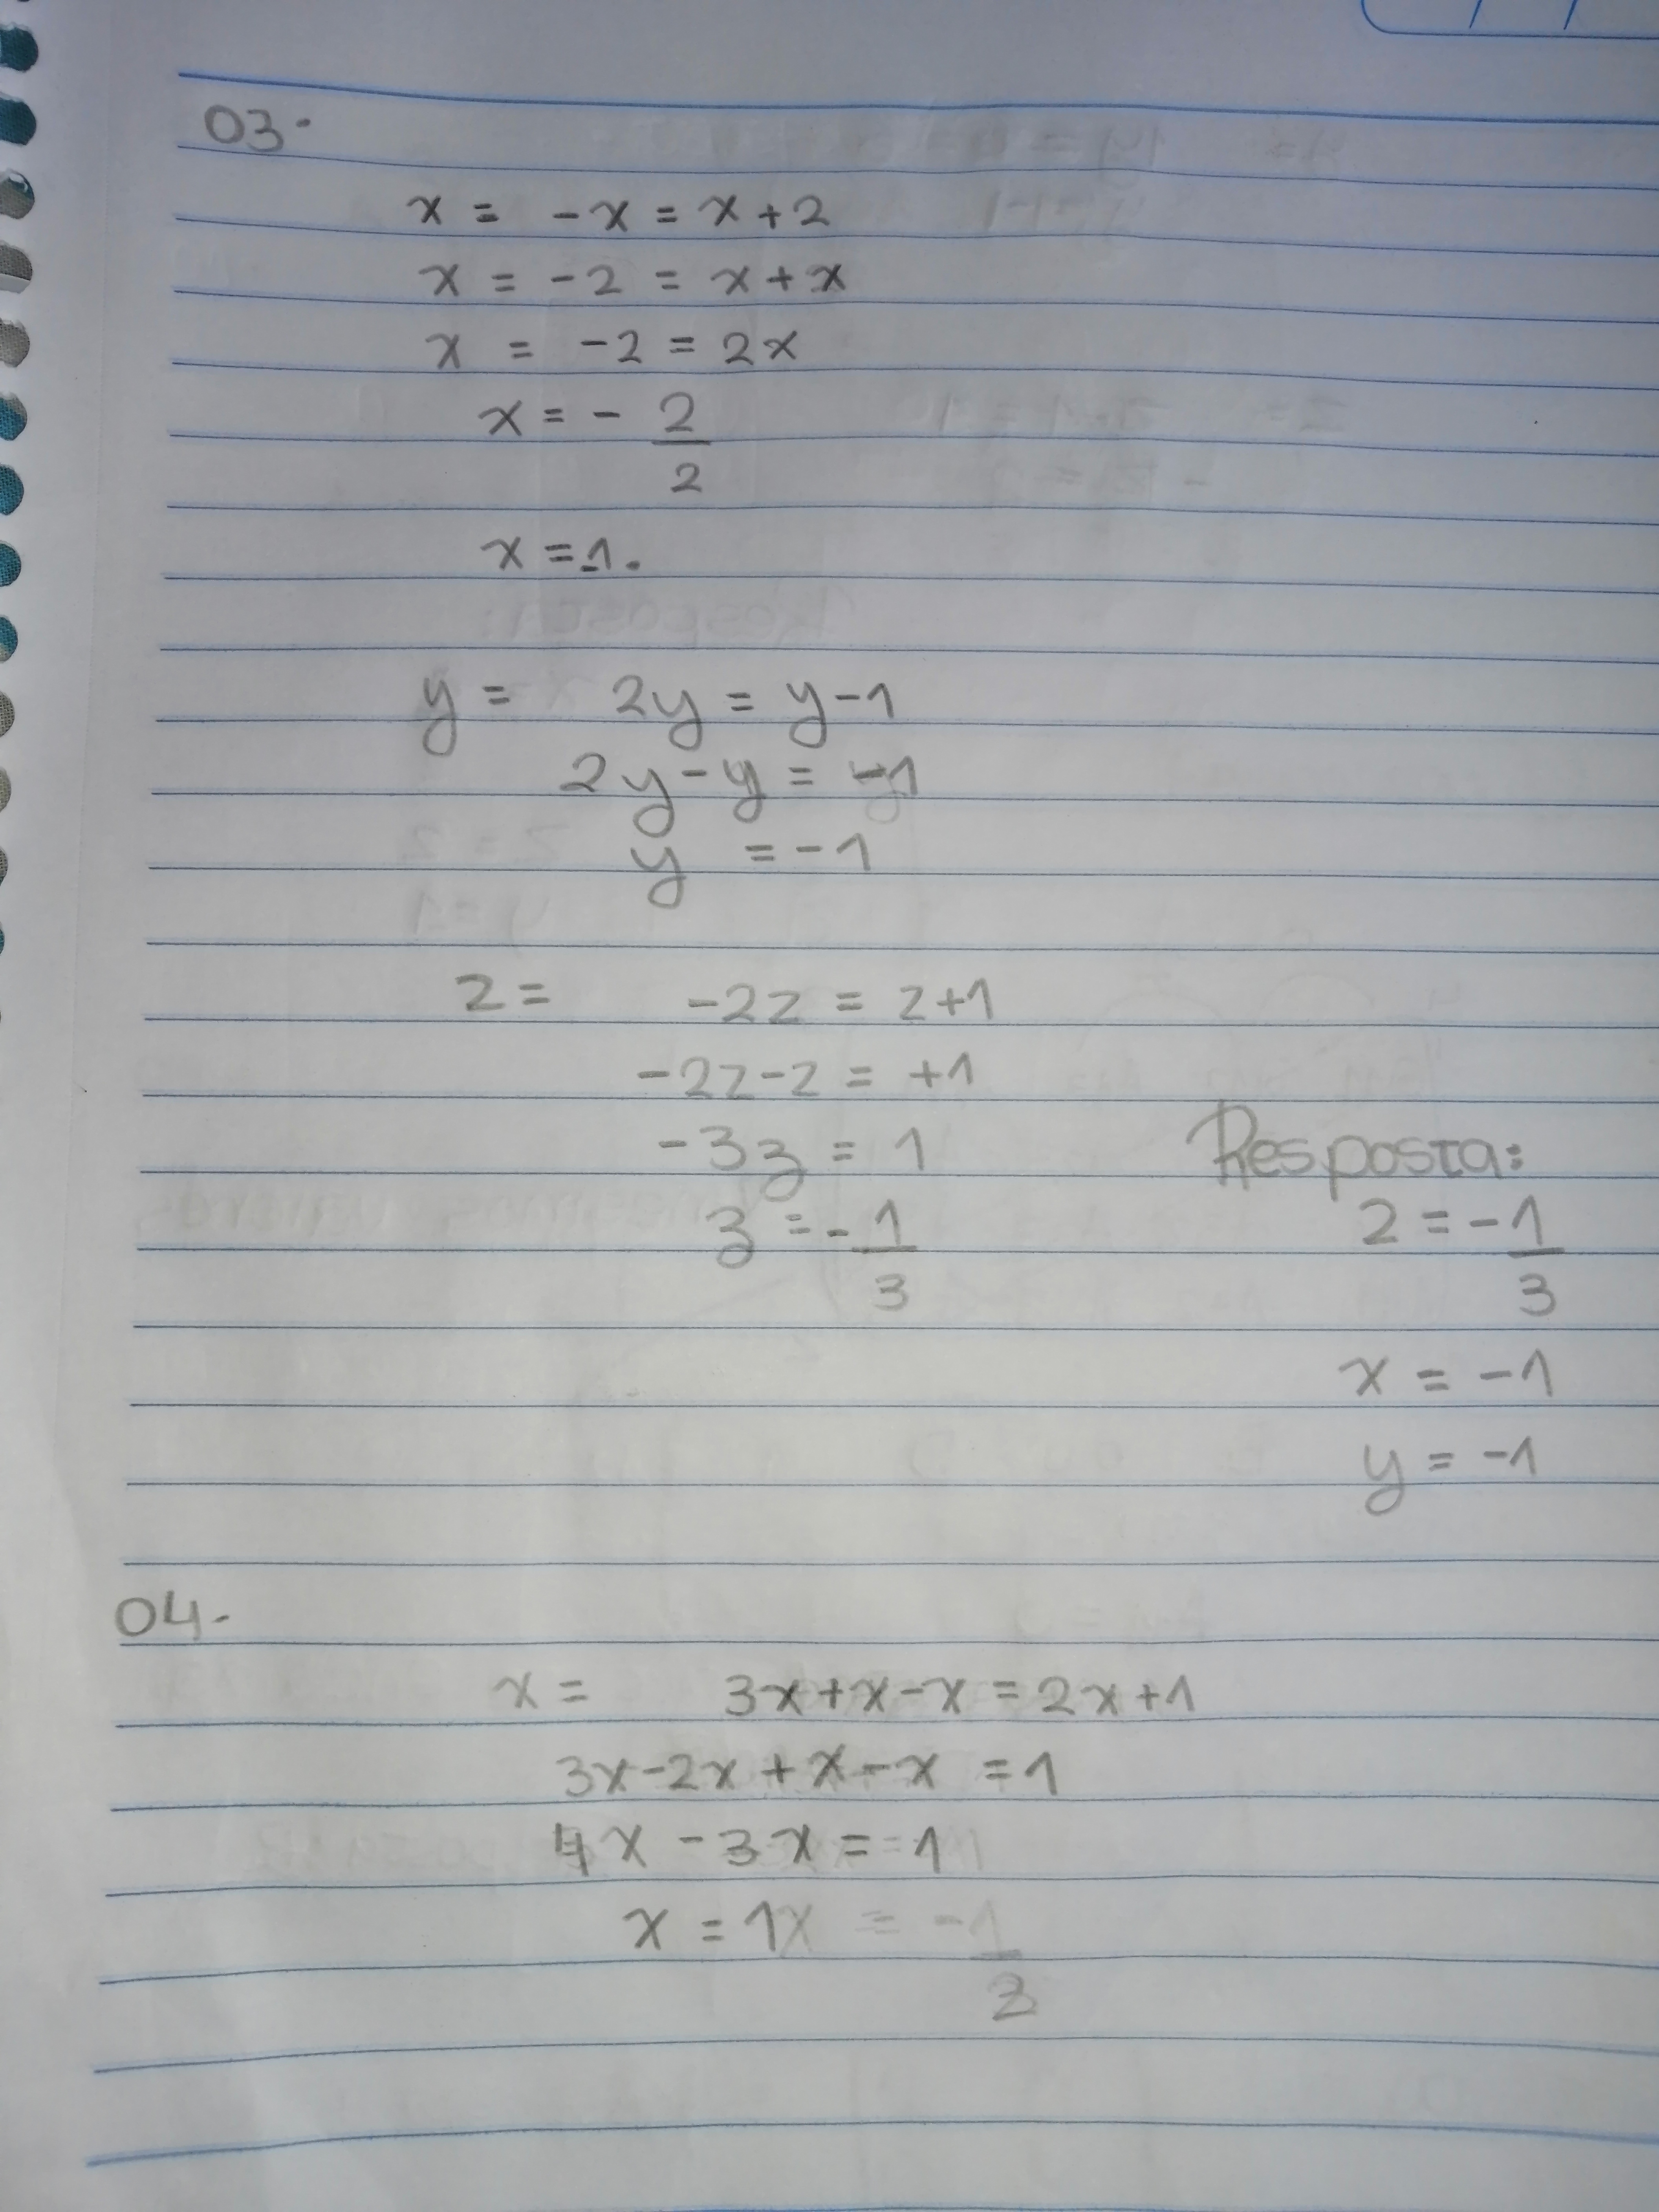 03-
x = -x = x+2
x = -2 = x+x
x = -2 = 2x
x = - 2
2
x = 1.
y = 2y = y-1
2y-y = -1
y = -1
z = -2z = z+1
-2z-z = +1
-3z = 1
z = - 1
3
Resposta:
z = - 1
3
x = -1
y = -1
04-
x = 3x+x-x = 2x+1
3x-2x+x-x = 1
4x - 3x = 1
x = 1